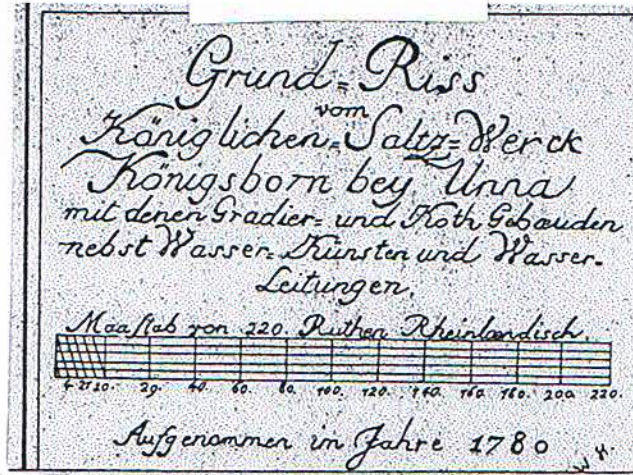 Grund=Riss
vom
Königlichen=Saltz=Werck
Königsborn bey Unna
mit denen Gradier= und Koth Gebæuden
nebst Wasser=Künsten und Wasser=
Leitungen.
Maaſtab von 220. Ruthen Rheinlændisch.
20. 40. 60. 80. 100. 120. 140. 160. 180. 200. 220.
Aufgenommen im Jahre 1780
W H.